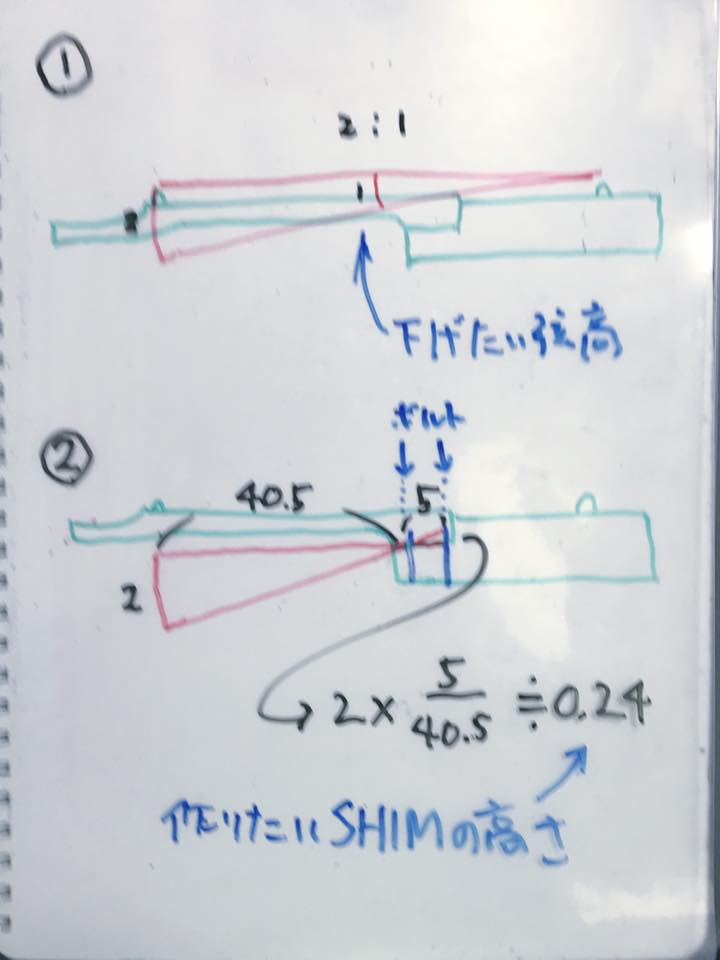 ①
2:1
2
1
下げたい弦高
②
ボルト
40.5
5
2
2×5/40.5≒0.24
作りたいSHIMの高さ